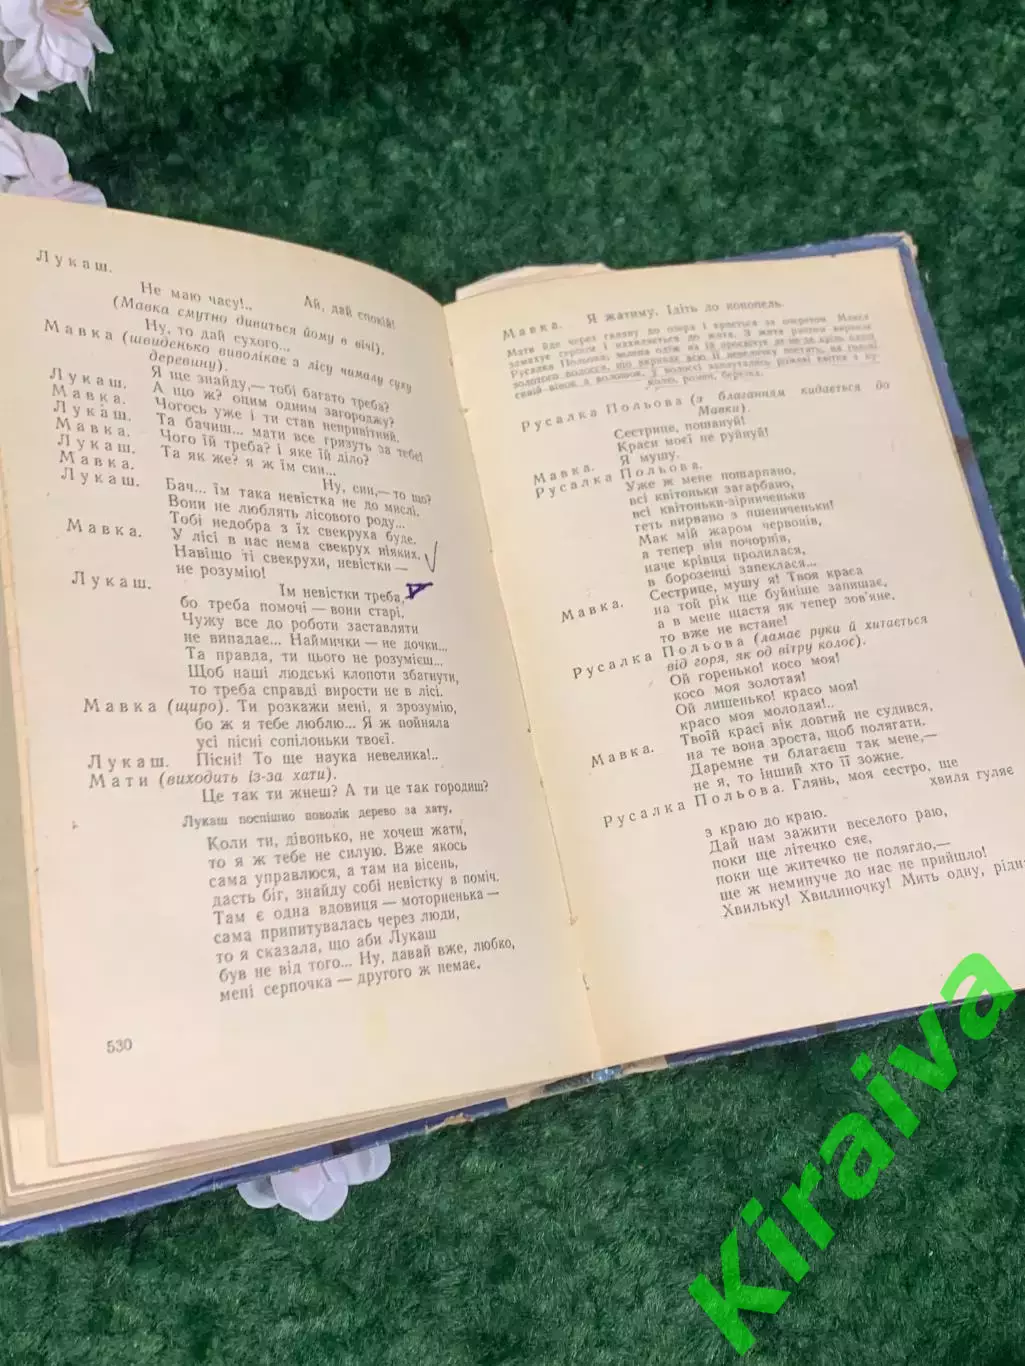 Лукаш.
Ай, дай спокій!
Не маю часу!..
(Мавка смутно дивиться йому в вічі).
Ну, то дай сухого...
Мавка (швиденько виволікає з лісу чималу суху
деревину).
Я ще знайду,— тобі багато треба?
Лукаш. А що ж? оцим одним загороджу?
Мавка. Чогось уже і ти став непривітний.
Лукаш. Та бачиш... мати все гризуть за тебе!
Мавка. Чого їй треба? і яке їй діло?
Лукаш. Та як же? я ж їм син...
Мавка. Ну, син,— то що?
Лукаш. Бач... їм така невістка не до мислі.
Вони не люблять лісового роду...
Тобі недобра з їх свекруха буде.
Мавка. У лісі в нас нема свекрух ніяких.
Навіщо ті свекрухи, невістки —
не розумію!
Лукаш. Їм невістки треба,
бо треба помочі — вони старі.
Чужу все до роботи заставляти
не випадає... Наймички — не дочки...
Та правда, ти цього не розумієш...
Щоб наші людські клопоти збагнути,
то треба справді вирости не в лісі.
Мавка (щиро). Ти розкажи мені, я зрозумію,
бо ж я тебе люблю... Я ж пойняла
усі пісні сопілоньки твоєї.
Лукаш. Пісні! То ще наука невелика!..
Мати (виходить із-за хати).
Це так ти жнеш? А ти це так городиш?
Лукаш поспішно поволік дерево за хату.
Коли ти, дівонько, не хочеш жати,
то я ж тебе не силую. Вже якось
сама управлюся, а там на восінь,
дасть біг, знайду собі невістку в поміч.
Там є одна вдовиця — моторненька —
сама припитувалась через люди,
то я сказала, що аби Лукаш
був не від того... Ну, давай вже, любко,
мені серпочка — другого ж немає.
530
Мавка. Я жатиму. Ідіть до конопель.
Мати йде через галяву до озера і криється за очеретом. Мавка
замахує серпом і нахиляється до жита. З жита раптом виринає
Русалка Польова, зелена одіж на їй просвічує де-не-де крізь плащ
золотого волосся, що вкриває всю її невеличку постать, на голові
синій вінок з волошок, у волоссі заплутались рожеві квітки з ку-
колю, ромен, березка.
Русалка Польова (з благанням кидається до
Мавки).
Сестрице, пошануй!
Краси моєї не руйнуй!
Мавка. Я мушу.
Русалка Польова.
Уже ж мене пошарпано,
всі квітоньки загарбано,
всі квітоньки-зірниченьки
геть вирвано з пшениченьки!
Мак мій жаром червонів,
а тепер він почорнів,
наче крівця пролилася,
в борозенці запеклася...
Мавка. Сестрице, мушу я! Твоя краса
на той рік ще буйніше запишає,
а в мене щастя як тепер зов'яне,
то вже не встане!
Русалка Польова (ламає руки й хитається
від горя, як од вітру колос).
Ой горенько! косо моя!
косо моя золотая!
Ой лишенько! красо моя!
красо моя молодая!..
Мавка. Твоїй красі вік довгий не судився,
на те вона зроста, щоб полягати.
Даремне ти благаєш так мене,—
не я, то інший хто її зожне.
Русалка Польова. Глянь, моя сестро, ще
хвиля гуляє
з краю до краю.
Дай нам зажити веселого раю,
поки ще літечко сяє,
поки ще житечко не полягло,—
ще ж неминуче до нас не прийшло!
Хвильку! Хвилиночку! Мить одну, рідн
Kiraiva